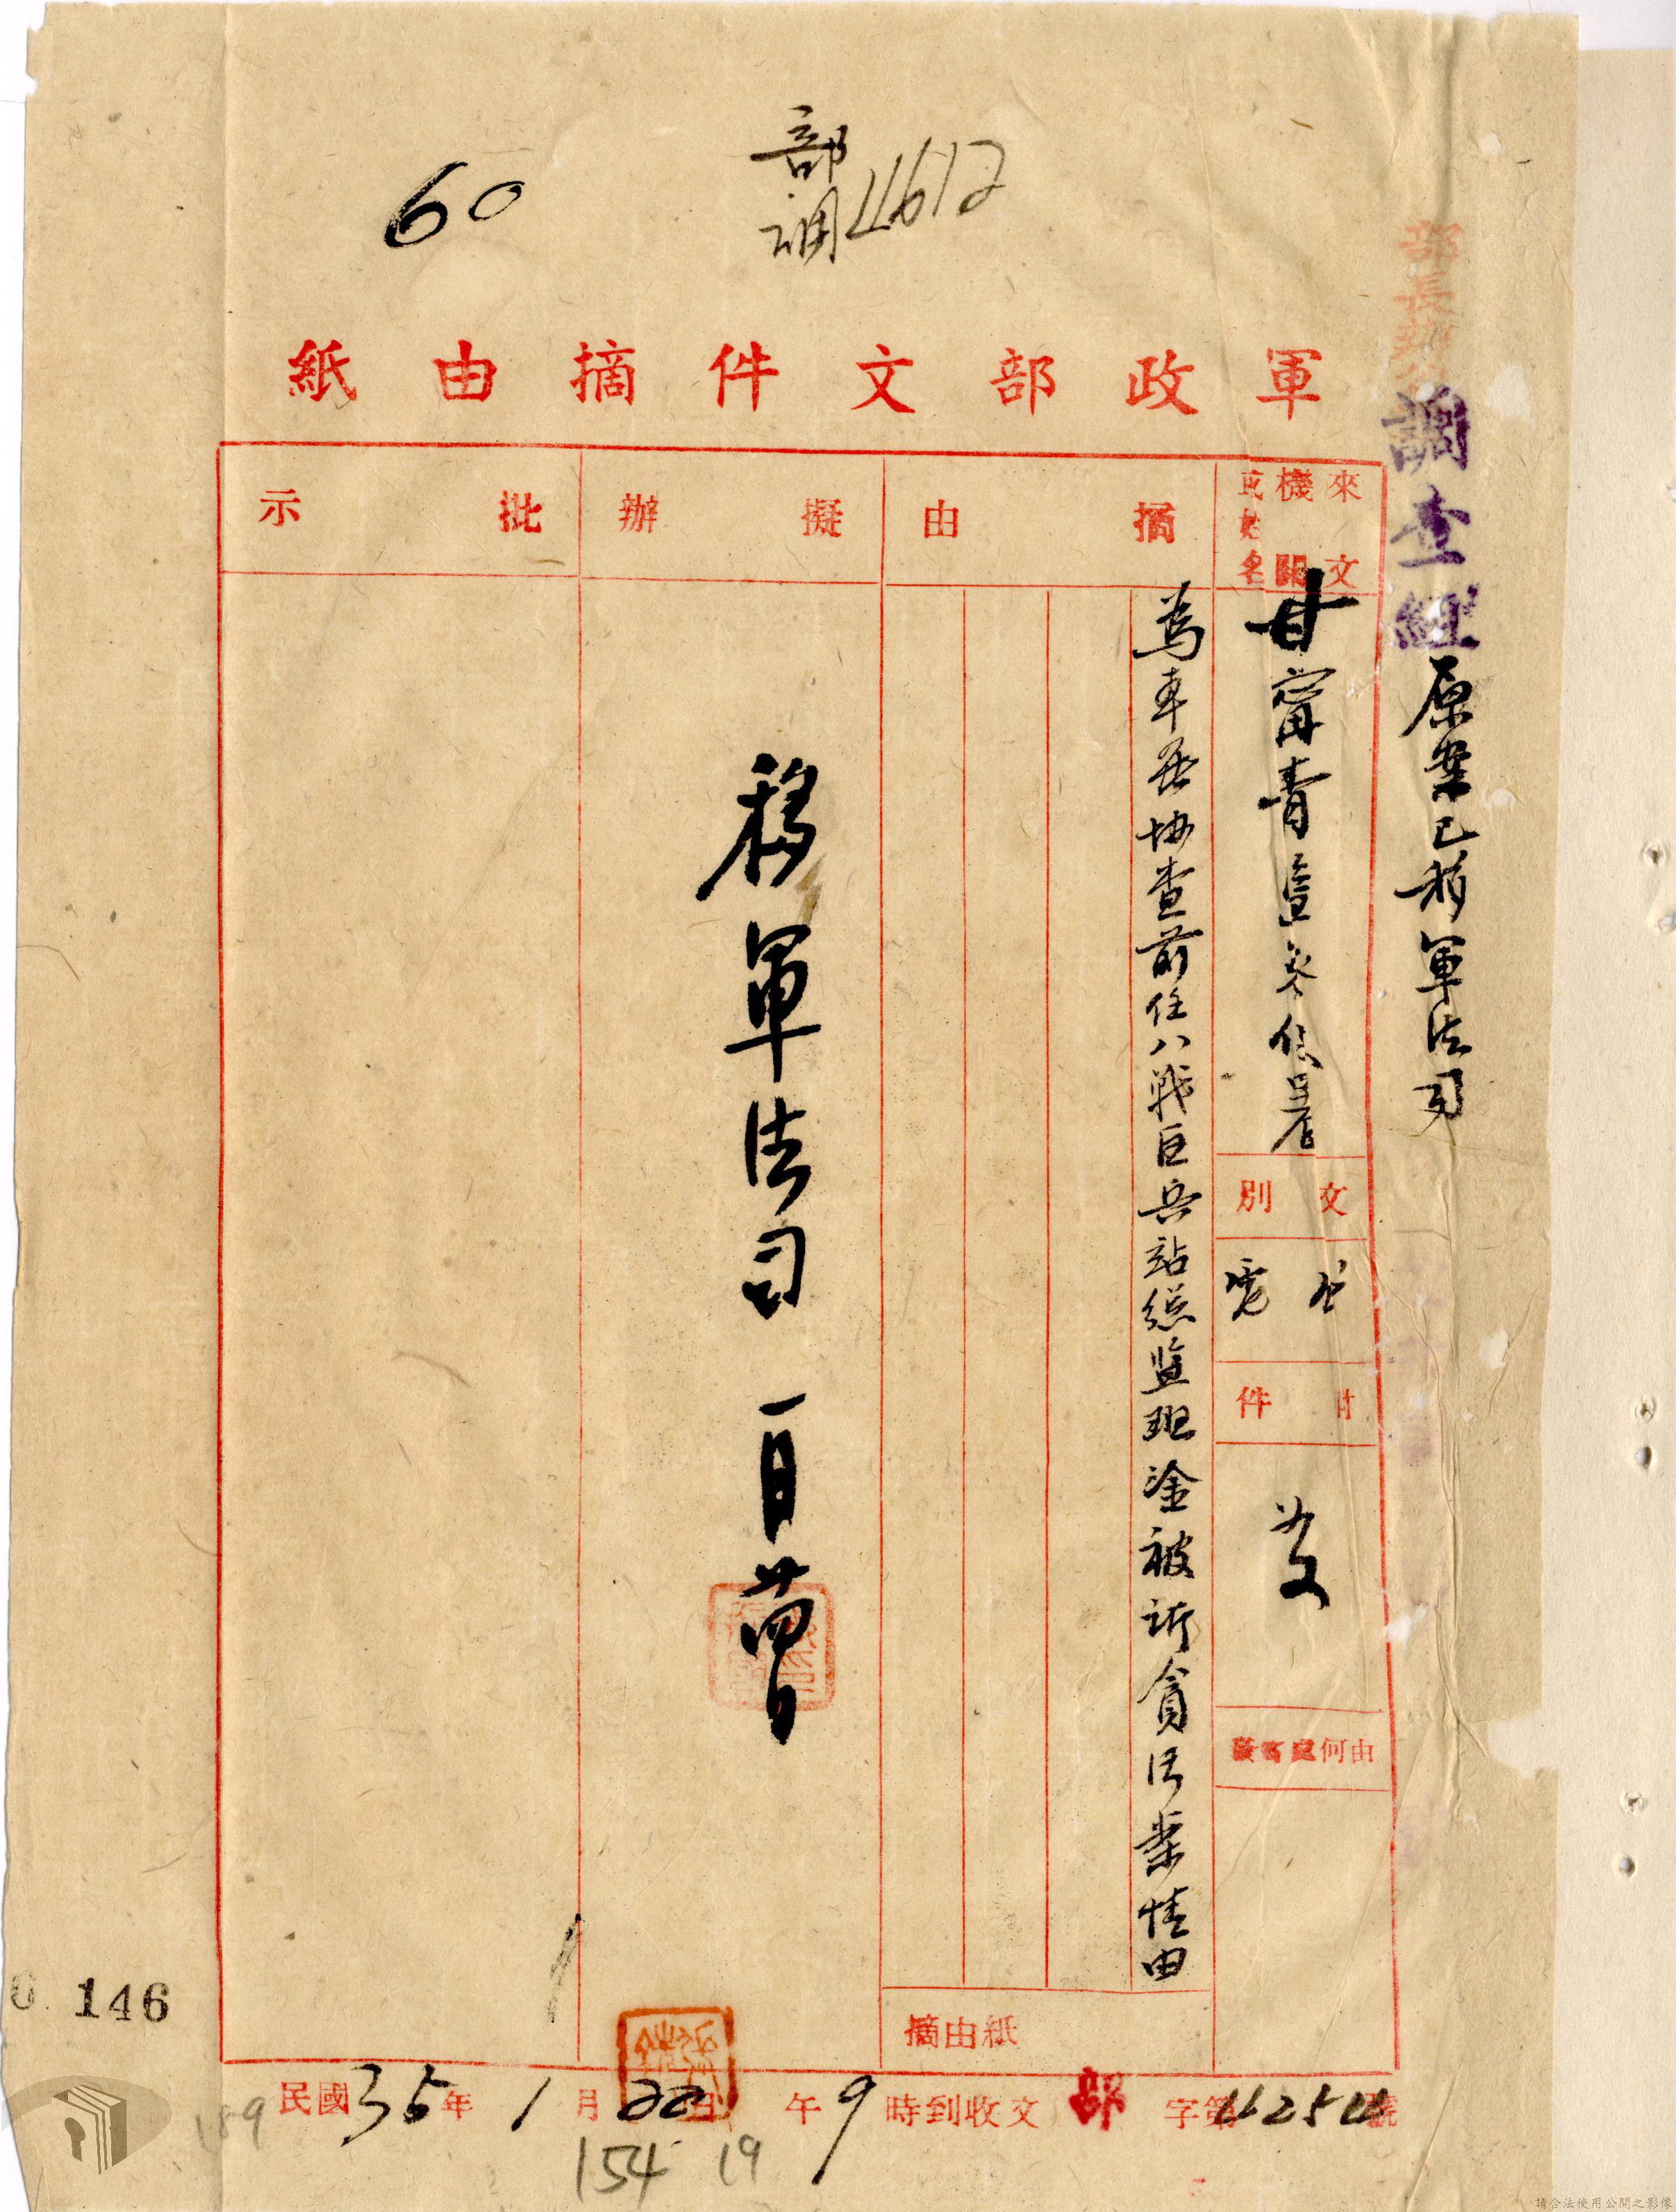 60
部
調 4612
軍政部文件摘由紙
調查組
原案已移軍法司
來文機關或姓名
甘寧青監察使署
文別
代電
附件
由何處寄發
摘由
為奉委協查前任八戰區兵站總監班淦被訴貪污案情由
擬辦
移軍法司 一月廿四日
批示
摘由紙
146
民國35年1月22日午9時到收文部字第11254號
189
154 19
請合法使用公開之影像